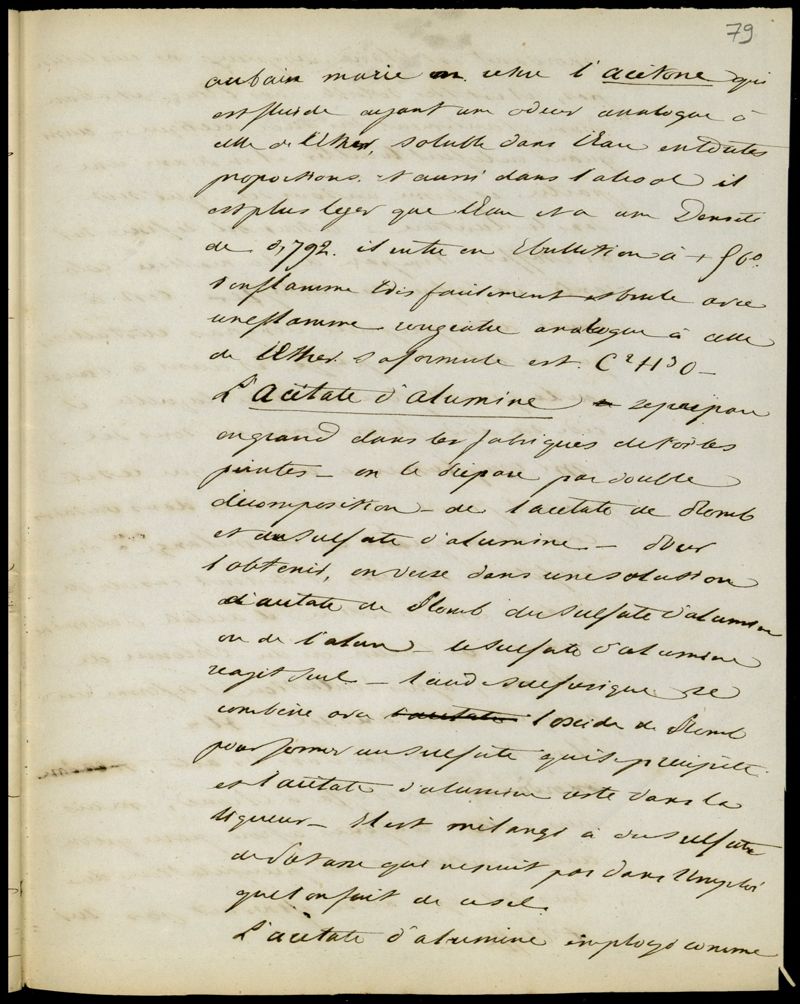 79
au bain marie on retire l'acétone qui
est fluide ayant une odeur analogue à
celle de l'Ether, soluble dans l'Eau en toutes
proportions. et aussi dans l'alcool il
est plus leger que l'Eau et a une Densité
de 0,792. il entre en Ebullition à + 56°
s'enflamme très facilement et brule avec
une flamme rougeatre analogue à celle
de l'Ether. sa formule est. C²H³O –
L'Acétate d'alumine se prépare
en grand dans les fabriques de toiles
peintes – on le prépare par double
décomposition – de l'acetate de Plomb
et du sulfate d'alumine – Pour
l'obtenir, on verse dans une solution
d'acetate de Plomb du sulfate d'alumine
ou de l'alun – le sulfate d'alumine
reagit seul – l'acide sulfurique se
combine avec l'acetate l'oxide de Plomb
pour former un sulfate qui se precipite
et l'acétate d'alumine reste dans la
liqueur – Il est mélangé à du sulfate
de Potasse qui ne nuit pas dans l'emploi
que l'on fait de ce sel.
L'acétate d'alumine employé comme